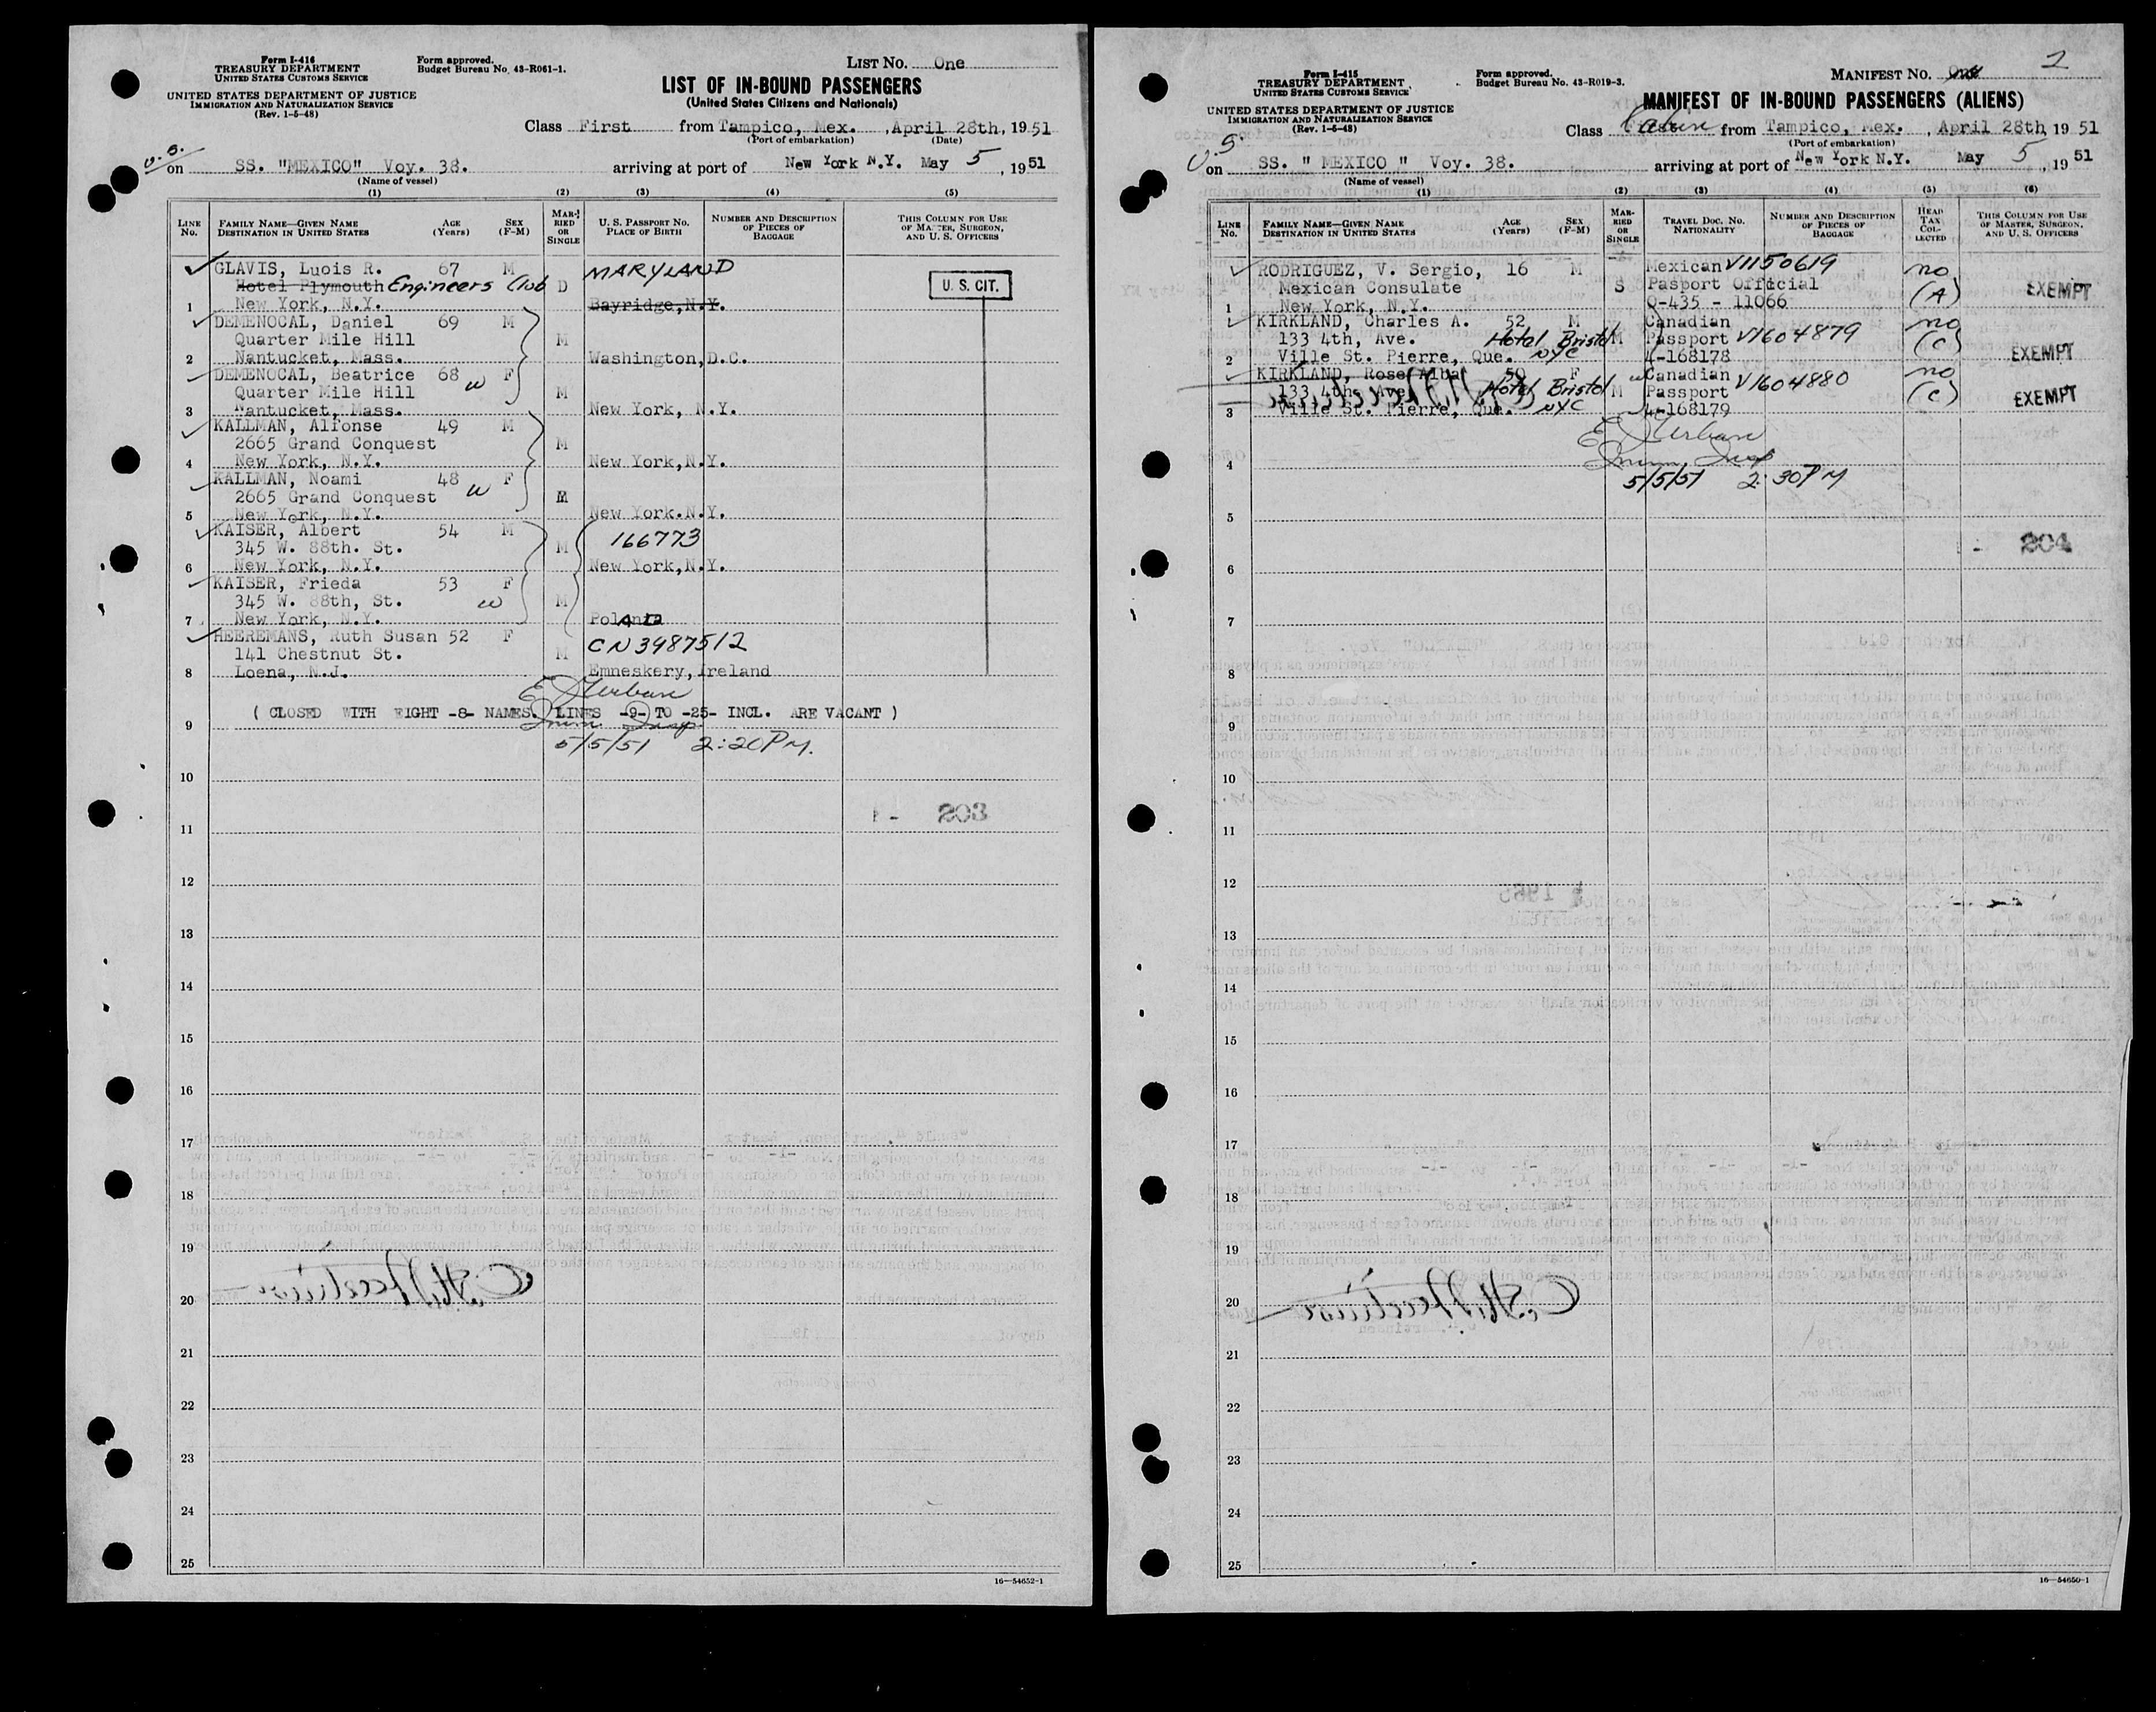 Form I-416
TREASURY DEPARTMENT
UNITED STATES CUSTOMS SERVICE
UNITED STATES DEPARTMENT OF JUSTICE
IMMIGRATION AND NATURALIZATION SERVICE
(Rev. 1-5-48)
Form approved.
Budget Bureau No. 43-R061-1.
LIST No. One
LIST OF IN-BOUND PASSENGERS
(United States Citizens and Nationals)
Class First from Tampico, Mex. , April 28th, 1951
(Port of embarkation) (Date)
U.S.
on SS. "MEXICO" Voy. 38. arriving at port of New York N.Y. May 5 , 1951
(Name of vessel)
(1) (2) (3) (4) (5)
LINE No.
FAMILY NAME—GIVEN NAME
DESTINATION IN UNITED STATES
AGE (Years)
SEX (F-M)
MARRIED OR SINGLE
U. S. PASSPORT No.
PLACE OF BIRTH
NUMBER AND DESCRIPTION OF PIECES OF BAGGAGE
THIS COLUMN FOR USE OF MASTER, SURGEON, AND U. S. OFFICERS
GLAVIS, Luois R. 67 M MARYLAND
Hotel Plymouth Engineers Club D U. S. CIT.
1 New York, N.Y. Bayridge,N.Y.
DEMENOCAL, Daniel 69 M
Quarter Mile Hill M
2 Nantucket, Mass. Washington,D.C.
DEMENOCAL, Beatrice 68 w F
Quarter Mile Hill M
3 Nantucket, Mass. New York, N.Y.
KALLMAN, Alfonse 49 M
2665 Grand Conquest M
4 New York, N.Y. New York,N.Y.
KALLMAN, Noami 48 w F
2665 Grand Conquest M
5 New York, N.Y. New York.N.Y.
KAISER, Albert 54 M
345 W. 88th. St. M 166773
6 New York, N.Y. New York,N.Y.
KAISER, Frieda 53 F
345 W. 88th, St. w M
7 New York, N.Y. Poland
HEEREMANS, Ruth Susan 52 F
141 Chestnut St. M CN3987512
8 Loena, N.J. Emneskery,Ireland
E J Urban
( CLOSED WITH EIGHT -8- NAMES. LINES -9- TO -25- INCL. ARE VACANT )
9 Imm. Insp
5/5/51 2:20PM.
10
203
11
12
13
14
15
16
17
18
19
20
21
22
23
24
25
16—54652-1
Form I-415
TREASURY DEPARTMENT
UNITED STATES CUSTOMS SERVICE
UNITED STATES DEPARTMENT OF JUSTICE
IMMIGRATION AND NATURALIZATION SERVICE
(Rev. 1-5-48)
Form approved.
Budget Bureau No. 43-R019-3.
MANIFEST No. One 2
MANIFEST OF IN-BOUND PASSENGERS (ALIENS)
Class Cabin from Tampico, Mex. , April 28th, 1951
(Port of embarkation)
U.S.
on SS. " MEXICO " Voy. 38. arriving at port of New York N.Y. May 5 , 1951
(Name of vessel)
(1) (2) (3) (4) (5) (6)
LINE No.
FAMILY NAME—GIVEN NAME
DESTINATION IN UNITED STATES
AGE (Years)
SEX (F-M)
MARRIED OR SINGLE
TRAVEL DOC. No.
NATIONALITY
NUMBER AND DESCRIPTION OF PIECES OF BAGGAGE
HEAD TAX COLLECTED
THIS COLUMN FOR USE OF MASTER, SURGEON, AND U. S. OFFICERS
RODRIGUEZ, V. Sergio, 16 M Mexican V1150619 no
Mexican Consulate S Pasport Official (A) EXEMPT
1 New York, N.Y. O-435 - 11066
KIRKLAND, Charles A. 52 M Canadian no
133 4th, Ave. Hotel Bristol M Passport V1604879 (C)
2 Ville St. Pierre, Que. NYC 4-168178 EXEMPT
KIRKLAND, Rose Alba 50 F w Canadian no
133 4th, Ave. Hotel Bristol M Passport V1604880 (C) EXEMPT
3 Ville St. Pierre, Que. NYC 4-168179
E J Urban
4 Imm. Insp
5/5/51 2:30PM
5
204
6
7
8
9
10
11
12
13
14
15
16
17
18
19
20
21
22
23
24
25
16—54650-1